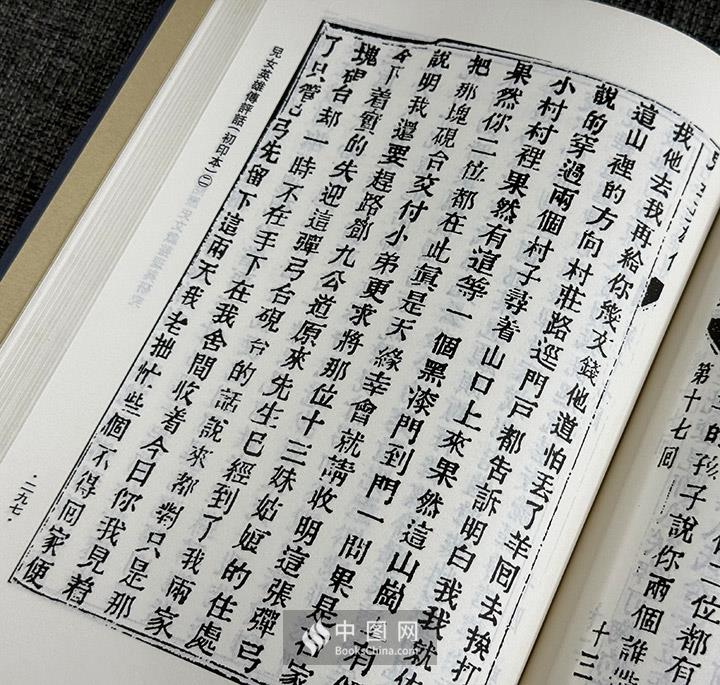 第十七回
的孩子說你兩個誰
二位都有
十三
我他去我再給你幾文錢他道怕丟了羊回去挨打
這山裡的方向村莊路逕門戶都告訴明白我我就依
說的穿過兩個村子尋着山口上來果然這山崗有
小村村裡果然有這等一個黑漆門到門一問果是家
果然你二位都在此眞是天緣幸會就請收明這張彈弓
把那塊硯台交付小弟更求將那位十三妹姑娘的住處
說明我還要趕路鄧九公道原來先生已經到了我兩家
下着實的失迎這彈弓合硯台的話說來都對只是那
塊硯台却一時不在手下在我舍間收着今日你我見着
了只管把弓先留下這兩天我老拙忙些個不得回家便
兒女英雄傳評話(初印本)㊁
·二九七·
中图网
BooksChina.com